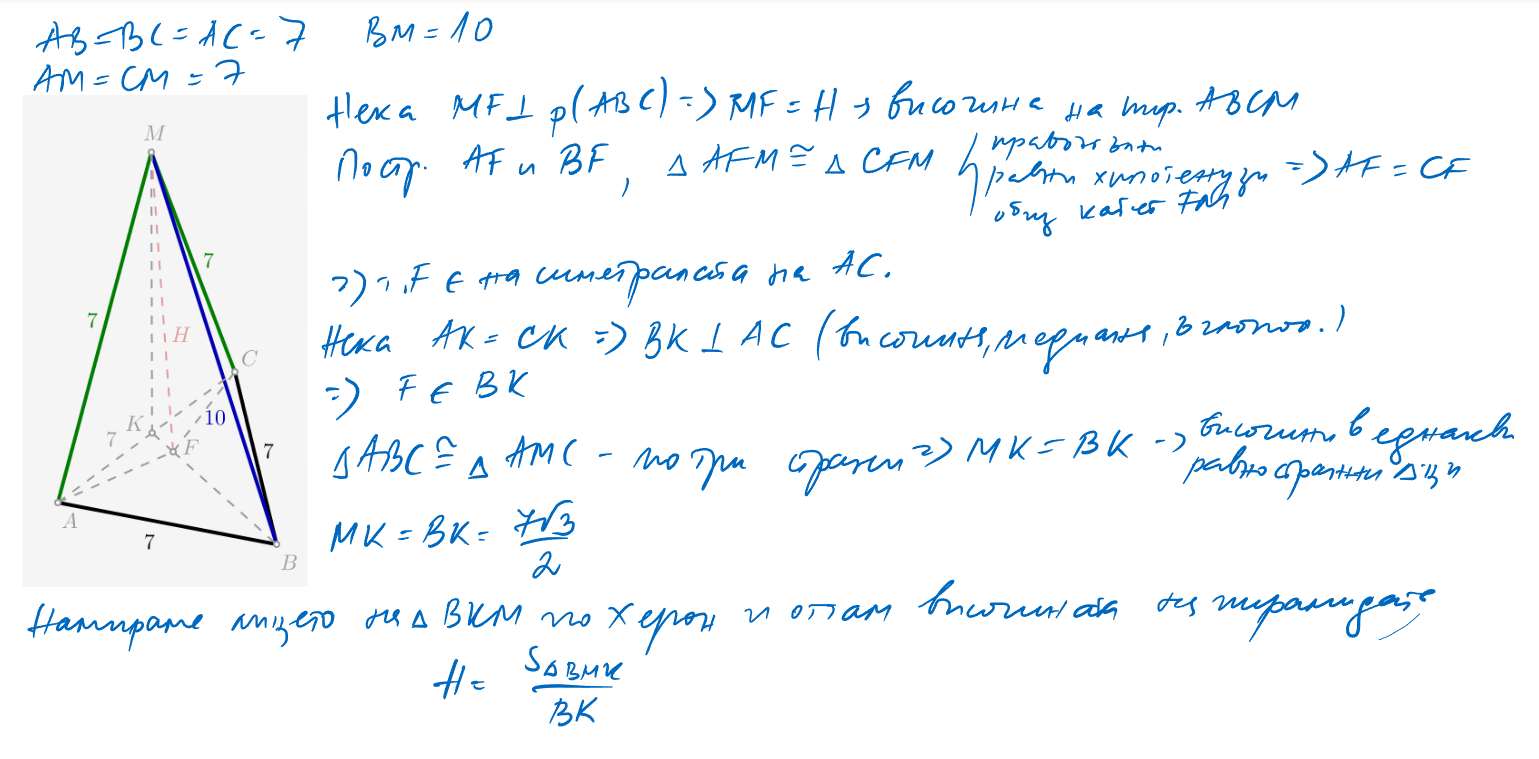 AB=BC=AC=7 BM=10
AM=CM=7
Нека MF⊥ p(ABC)=> MF=H → височина на пир. ABCM
Постр. AF и BF, △ AFM ≅ △ CFM { правоъгълни
равни хипотенузи => AF = CF
общ катет FM
=> т. F ∈ на симетралата на AC.
Нека AK = CK => BK ⊥ AC (височина, медиана, ъглопол.)
=> F ∈ BK
△ABC ≅ △ AMC - по три страни => MK = BK -> височини в еднакви
равностранни △-ци
MK = BK = 7√3/2
Намираме лицето на △ BKM по Херон и оттам височината на пирамидата
H = S△BMK/BK
M
7
7
H
C
K
7
F
10
7
A
7
B